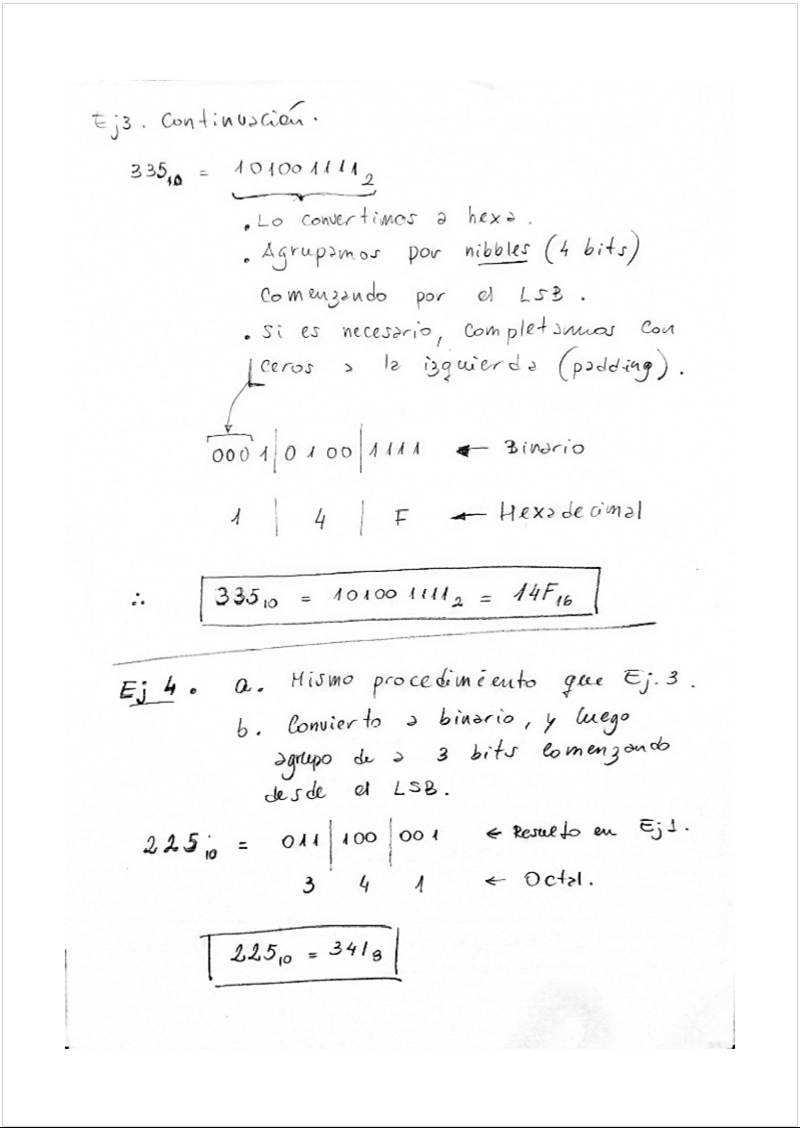 Ej3. Continuación.
335₁₀ = 101001111₂
. Lo convertimos a hexa.
. Agrupamos por nibbles (4 bits)
comenzando por el LSB.
. Si es necesario, completamos con
ceros a la izquierda (padding).
0001|0100|1111 ← Binario
1 | 4 | F ← Hexadecimal
∴ 335₁₀ = 101001111₂ = 14F₁₆
Ej 4. a. Mismo procedimiento que Ej. 3.
b. Convierto a binario, y luego
agrupo de a 3 bits comenzando
desde el LSB.
225₁₀ = 011|100|001 ← Resuelto en Ej1.
3 4 1 ← Octal.
225₁₀ = 341₈